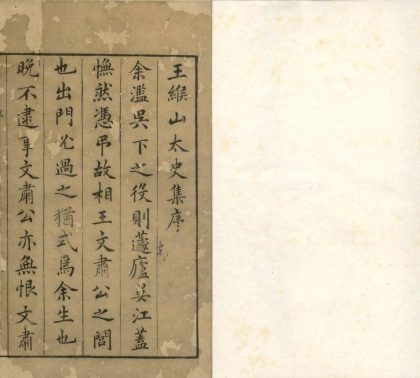 王緱山太史集序
余濫吳下之役則蘧廬婁江蓋
憮然憑弔故相王文肅公之閭
也出門先過之猶式焉余生也
晚不逮事文肅公亦無恨文肅